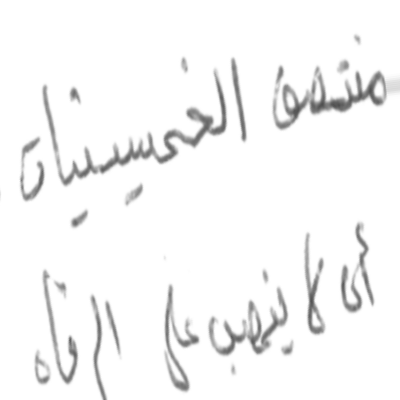 منتصف الخمسينات
أي لا ينصب على الرفاه